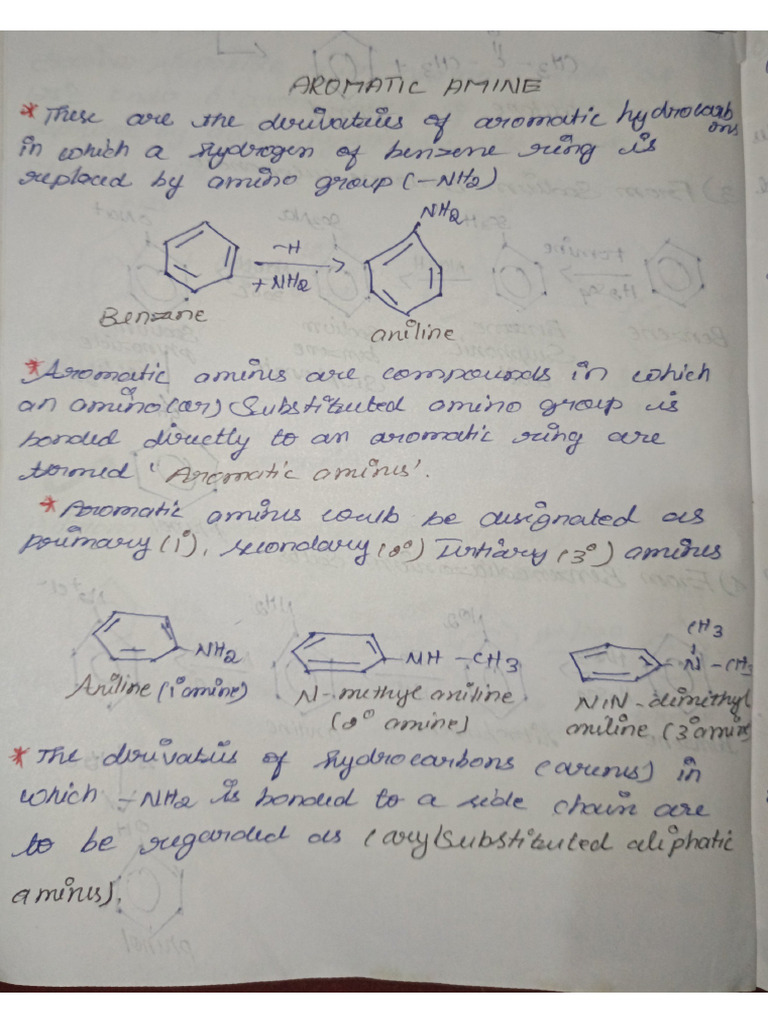 AROMATIC AMINE
* These are the derivatives of aromatic hydrocarbons
in which a hydrogen of benzene ring is
replaced by amino group (-NH2)
NH2
-H
+ NH2
Benzane
aniline
* Aromatic amines are compounds in which
an amino (or) Substituted amino group is
bonded directly to an aromatic ring are
termed 'Aromatic amines'.
* Aromatic amines could be designated as
primary (1°), secondary (2°) Tertiary (3°) amines
CH3
-NH2
-NH-CH3
-N-CH3
Aniline (1°amine)
N-methyl aniline
(2° amine)
N,N-dimethyl
aniline (3°amine
* The derivatives of hydrocarbons (arenes) in
which -NH2 is bonded to a side chain are
to be regarded as (aryl substituted aliphatic
amines).